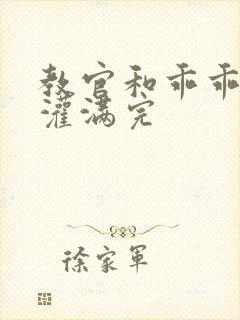 教官和乖乖
灌满完
徐家军